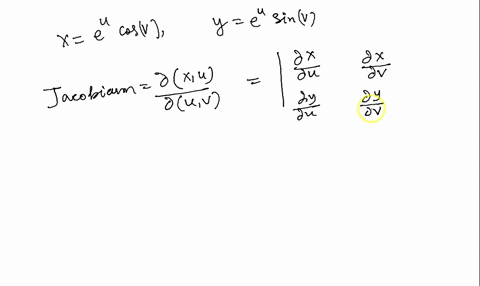 x = e^u cos(v), y = e^u sin(v)
Jacobian = ∂(x,u)/∂(u,v) = | ∂x/∂u ∂x/∂v
∂y/∂u ∂y/∂v